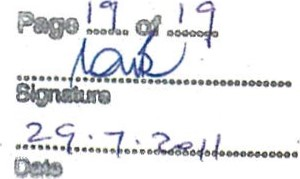 Page 19 of 19
Signature
29.7.2011
Date